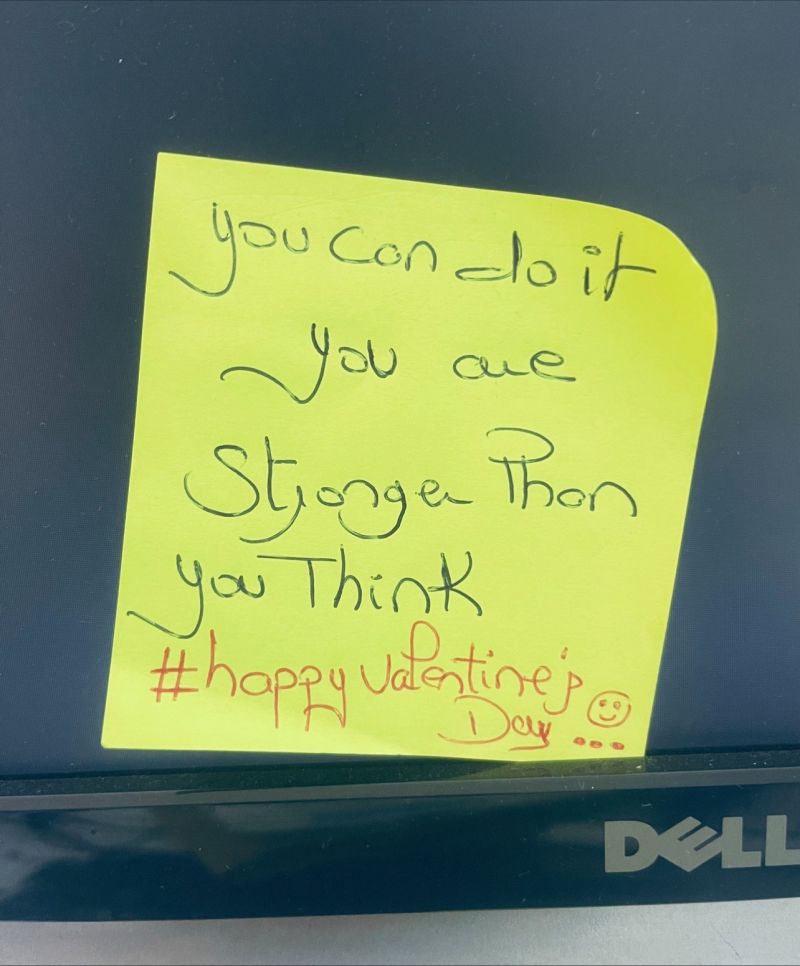 you can do it
you are
Stronger Than
you Think
#happy valentine's
Day ...
DELL